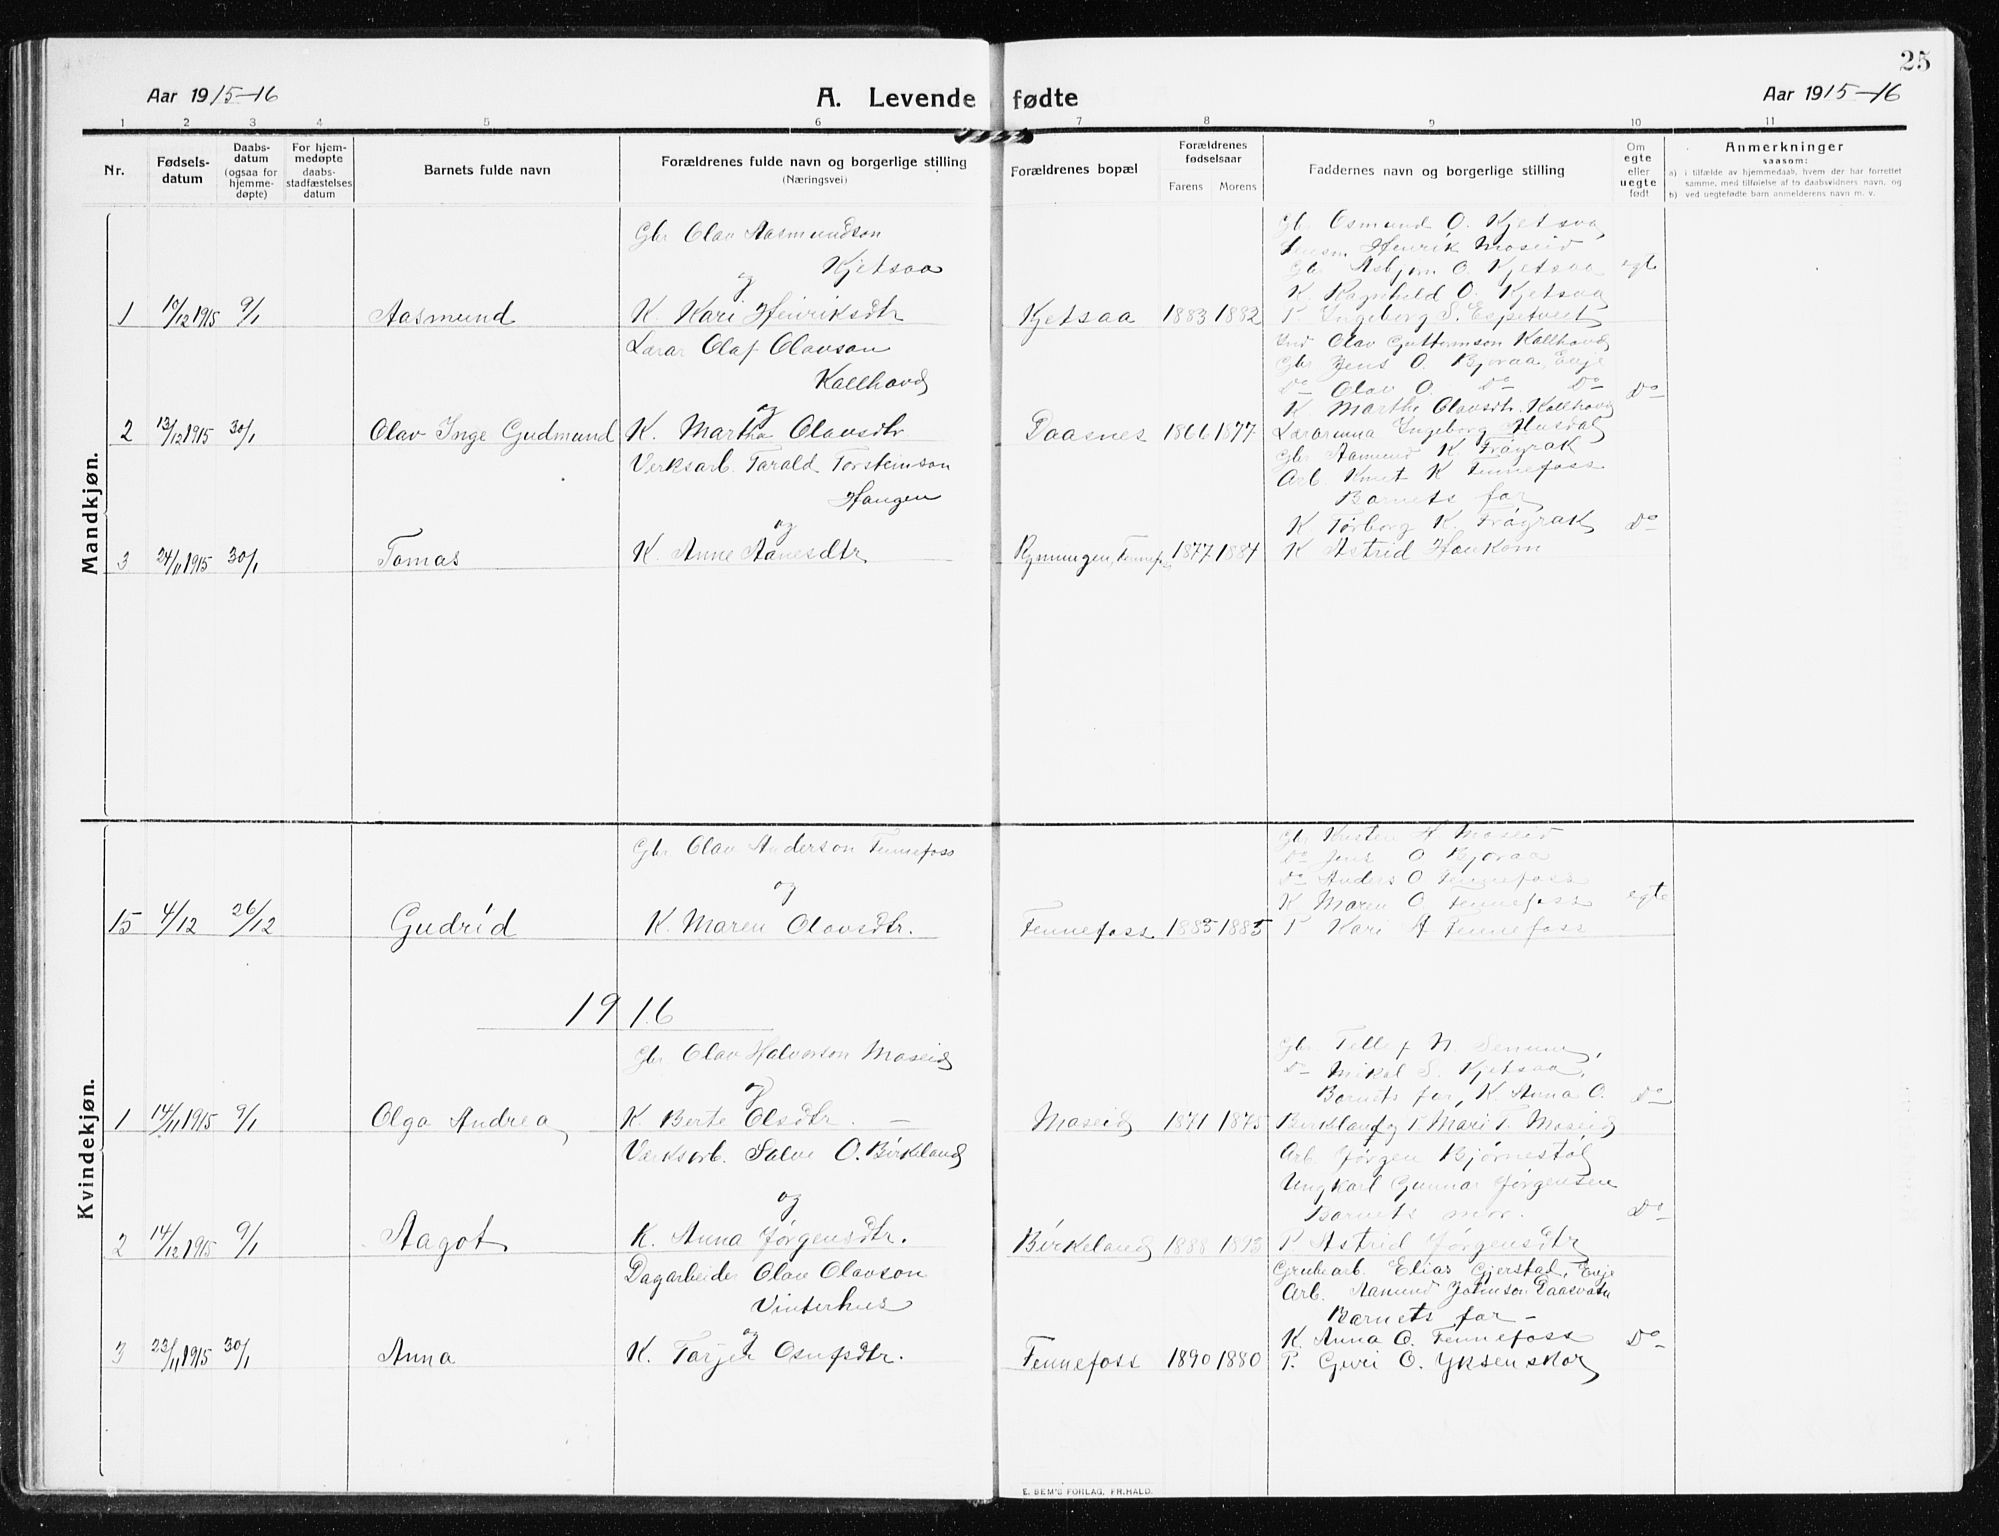 25
Aar 1915-16
A. Levende fødte
Aar 1915-16
1 2 3 4 5 6 7 8 9 10 11
Nr.
Fødsels-
datum
Daabs-
datum
(ogsaa for
hjemme-
døpte)
For hjem-
medøpte
daabs-
stadfæstelses
datum
Barnets fulde navn
Forældrenes fulde navn og borgerlige stilling
(Næringsvei)
Forældrenes bopæl
Forældrenes
fødselsaar
Farens Morens
Faddernes navn og borgerlige stilling
Om
egte
eller
uegte
født
Anmerkninger
saasom:
a) i tilfælde av hjemmedaab, hvem der har forrettet
samme, med tilføielse af to daabsvidners navn, og
b) ved uegtefødte barn anmelderens navn m. v.
Mandkjøn.
1 10/12 1915 9/1 Aasmund
Gbr Olav Aasmundson
Kjetsaa
og
K. Kari Henriksdtr
Kjetsaa 1883 1882
Gbr Osmund O. Kjetsaa
Lensm Henrik Moseid
Gbr Asbjørn O. Kjetsaa
K. Ragnhild O. Kjetsaa
P Ingeborg S. Espetveit
egte
2 13/12 1915 30/1 Olav Inge Gudmund
Lærar Olaf Olavson
Kallhovd
og
K. Martha Olavsdtr
Daasnes 1866 1877
Olav Guttormson Kallhovd
Gbr Jens O. Bjoraa, Evje
Do Olav O. Do Do
K Marthe Olavsdtr. Kallhovd
Lærarinna Ingeborg
Do
3 24/11 1915 30/1 Tomas
Verksarb. Tarald Torsteinson
Haugen
og
K. Anne Aanesdtr
Rynningen, 1877 1884
Gbr Aamund K Frøyrak
Arb. Knut K Fennefoss
Barnets far
K Torborg K. Frøyrak
K Astrid Haukom
Do
Kvindekjøn.
15 4/12 26/12 Gudrid
Gbr. Olav Anderson Fennefoss
og
K. Maren Olavsdtr.
Fennefoss 1885 1885
Gbr Kristen H Moseid
Do Jens O Bjoraa
Do Anders O Fennefoss
K Maren O. Fennefoss
P Kari A Fennefoss
egte
1916
1 14/11 1915 9/1 Olga Andrea
Gbr Olav Halvorson Moseid
og
K Berte Olsdtr. —
Moseid 1871 1875
Gbr. Tellef N. Senum,
Do Mikal S. Kjetsaa,
Barnets far, K Anna O.
Birkeland og P. Mari T. Moseid
Do
2 14/12 1915 9/1 Aagot
Værksarb. Salve O. Birkeland
og
K. Anna Jørgensdtr.
Birkeland 1888 1893
Arb. Jørgen Bjørnestøl
Ungkarl Gunnar Jørgensen
Barnets mor.
P. Astrid Jørgensdtr
Do
3 23/11 1915 30/1 Anna
Dagarbeider Olav Olavson
Vinterhus
og
K. Tarjer Osufsdtr.
Fennefoss 1890 1880
Grubearb. Elias Gjerstad, Evje
Arb. Aamund Johnson Daasvatn
Barnets far —
K. Anna O. Fennefoss
P. Guri O. Yksenskor
Do
E. SEM'S FORLAG, FR.HALD.